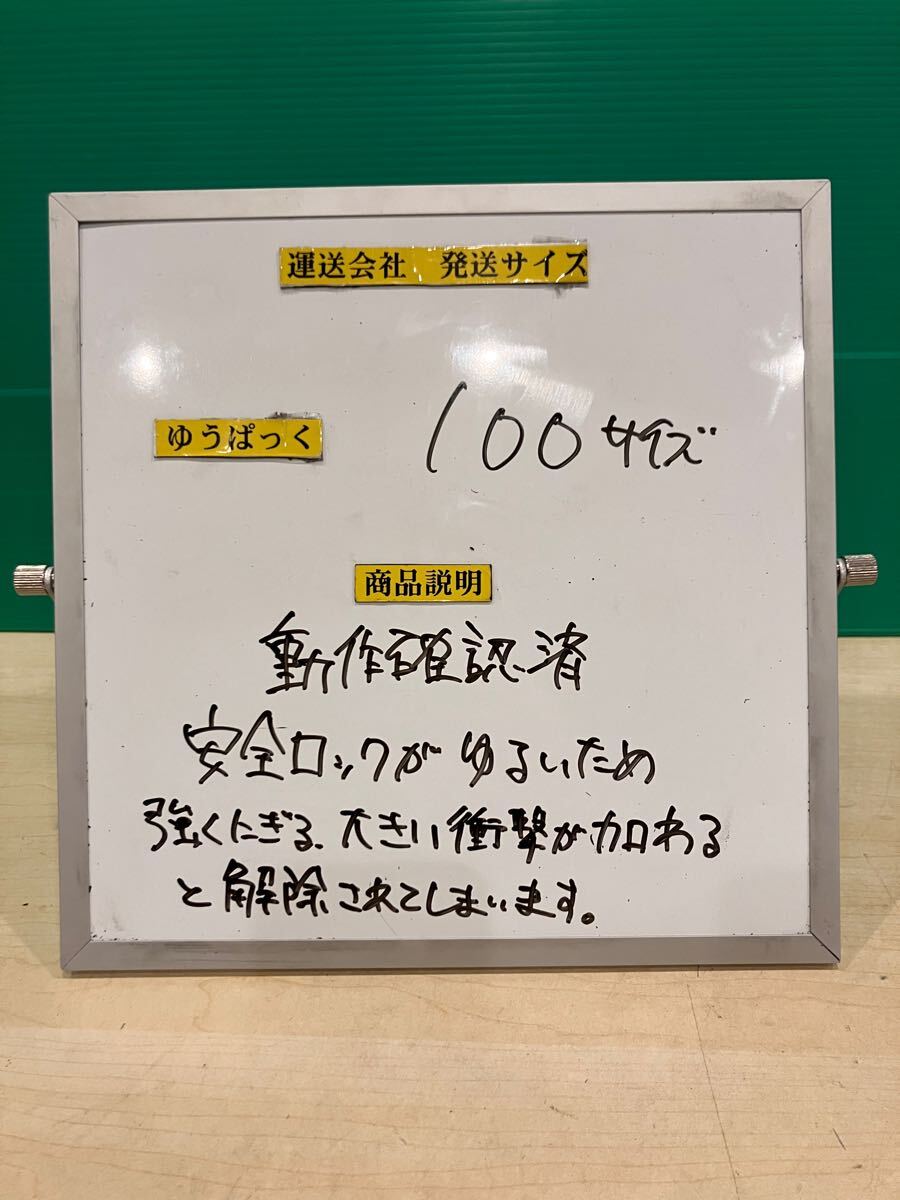 運送会社　発送サイズ
ゆうぱっく　100サイズ
商品説明
動作確認済
安全ロックがゆるいため
強くにぎる、大きい衝撃が加わる
と解除されてしまいます。